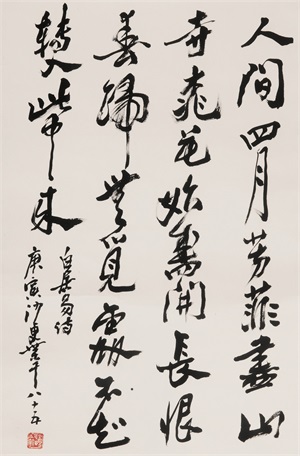 人間四月芳菲盡山
寺桃花始盛開長恨
春歸無覓處不知
轉入此中來
白居易詩
庚寅沙更世年八十五